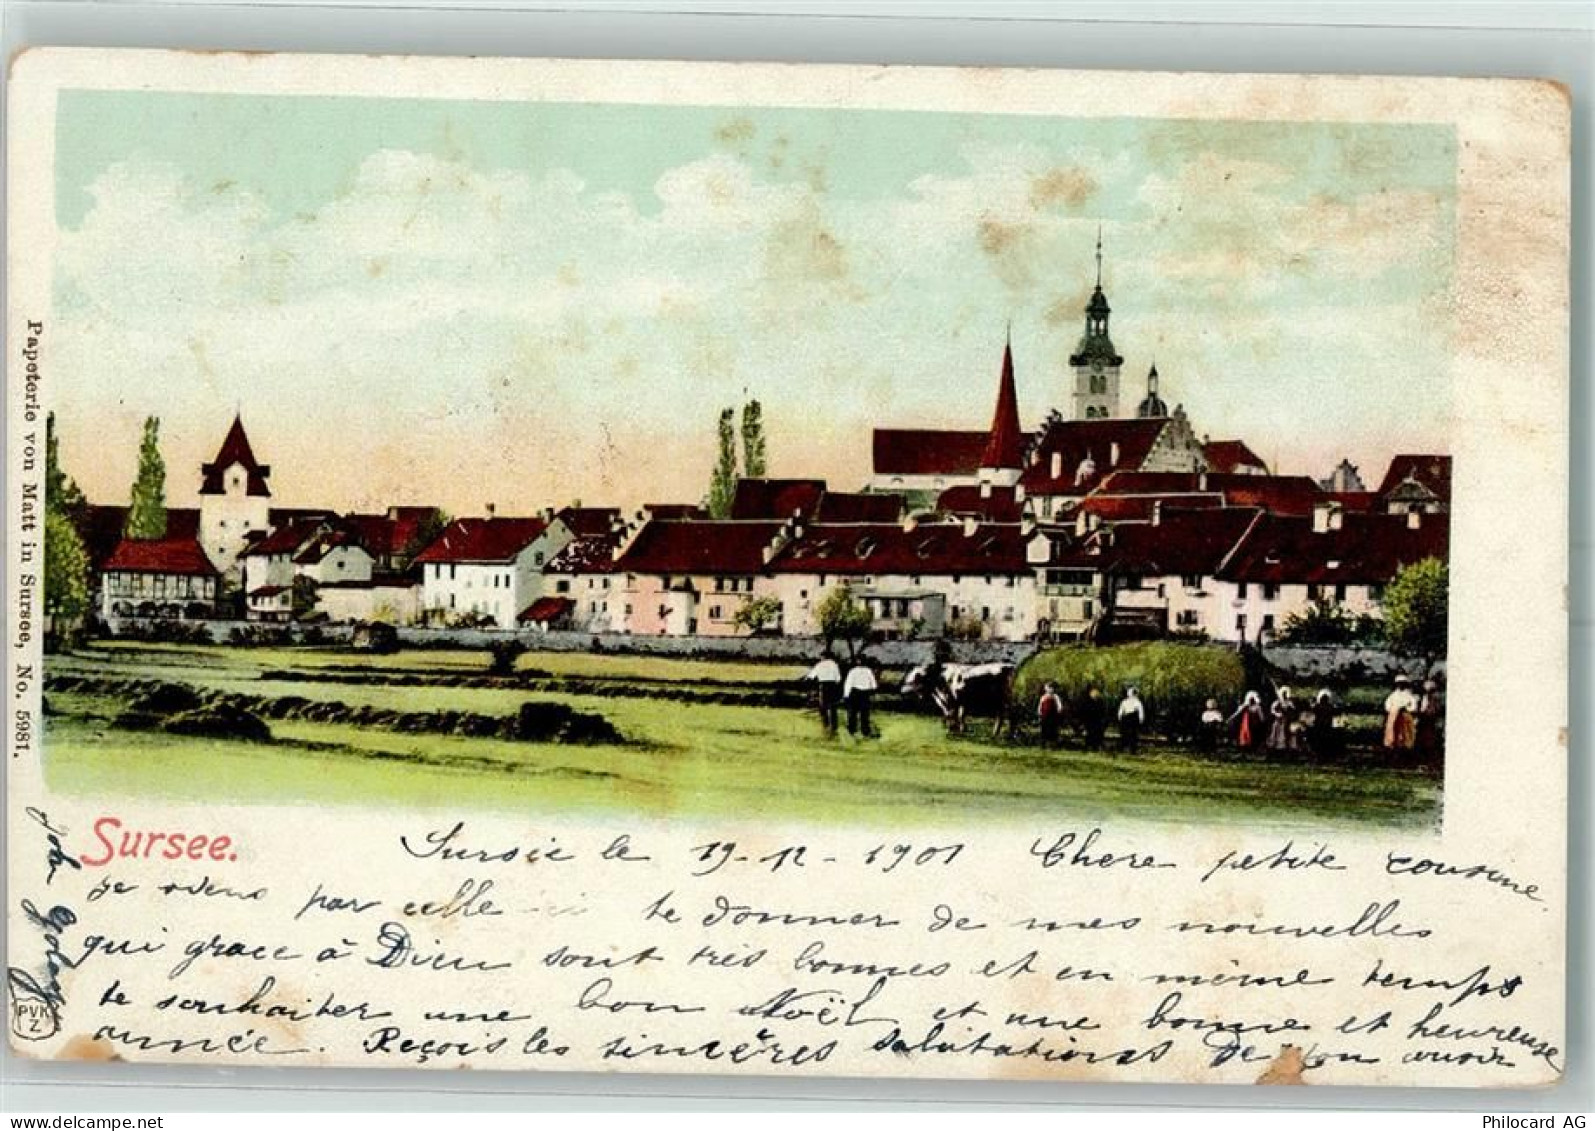 Papeterie von Matt in Sursee, No. 5981.
Sursee.
Sursée le 19-12-1901 Chère petite cousine
je viens par celle ci te donner de mes nouvelles
qui grace à Dieu sont très bonnes et en même temps
te souhaiter une bon Noël et une bonne et heureuse
année. Reçois les sincères salutations de ton
PVK
Z
Philocard AG